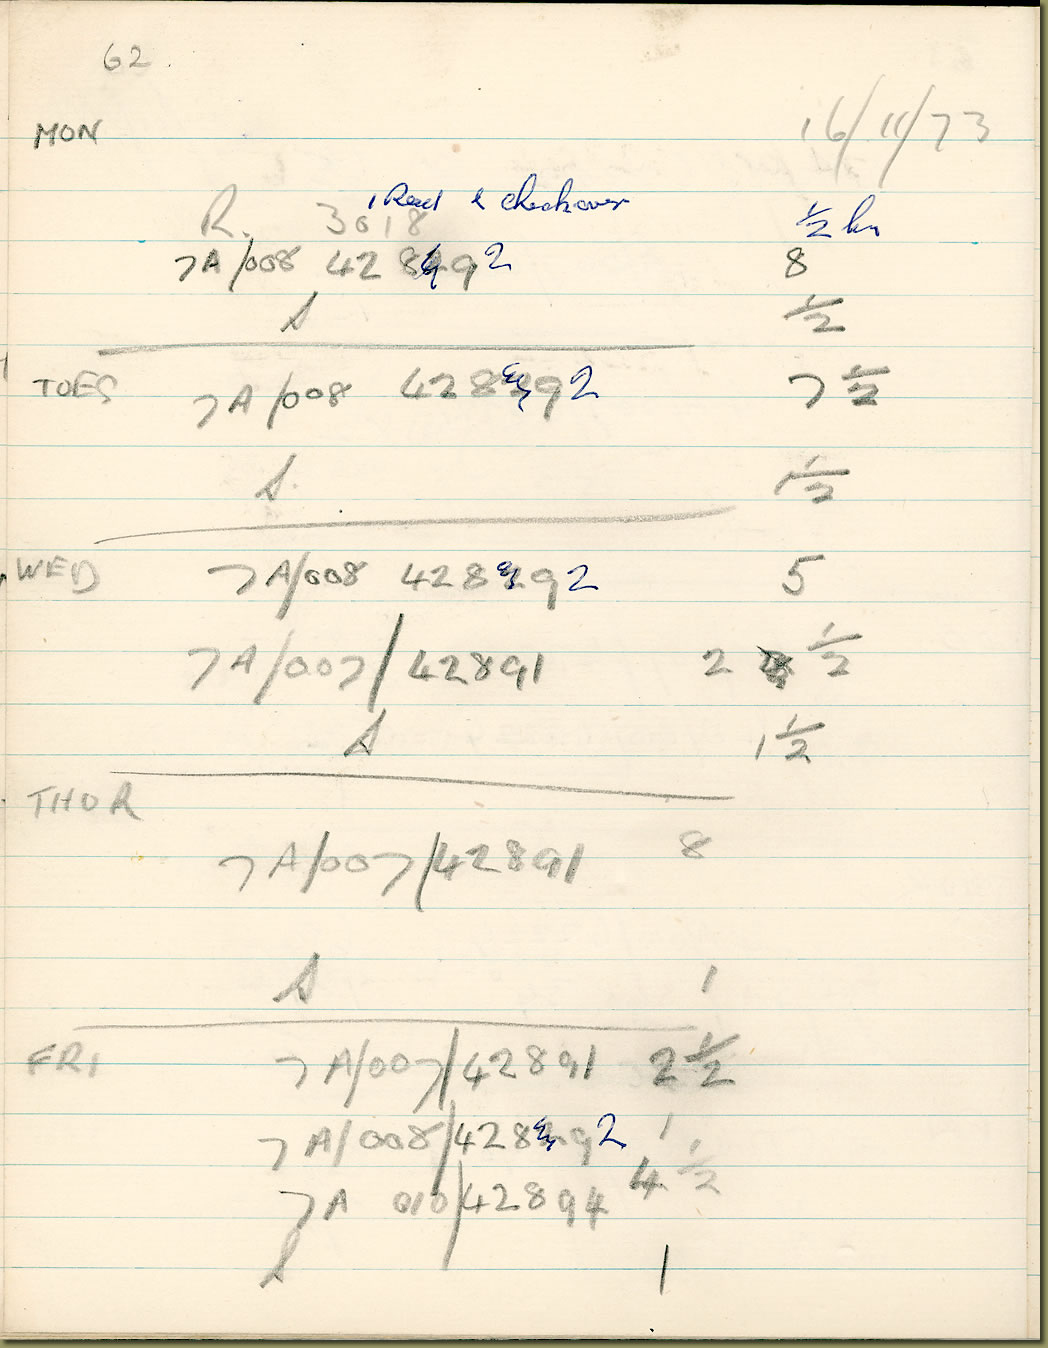 62.
MON 16/11/73
R. 3018 Read & checkover ½ hr
7A/008 42892 8
S ½
TUES 7A/008 42892 7½
S 1½
WED 7A/008 42892 5
7A/007/42891 2 ½
S 1½
THUR
7A/007/42891 8
S 1
FRI 7A/007/42891 2½
7A/008/42892 1
7A 010/42894 4½
S 1